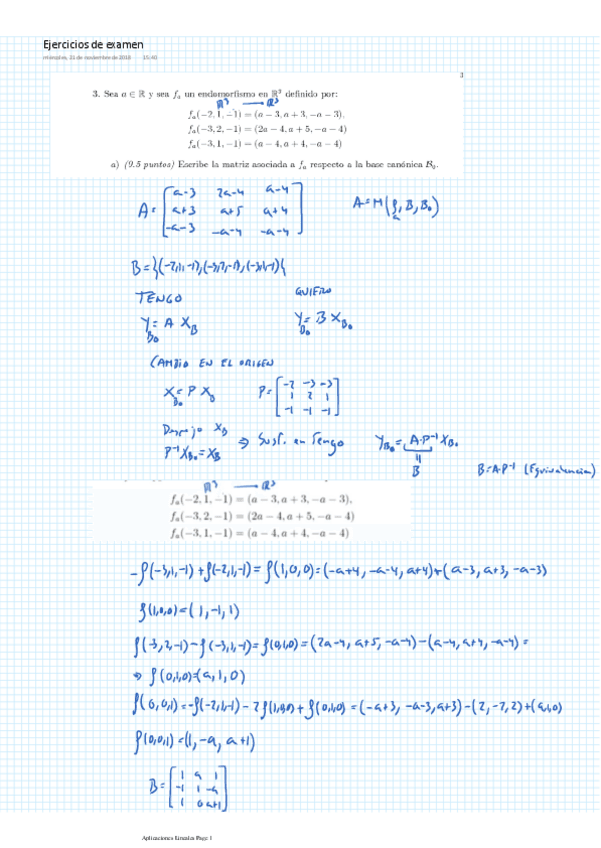 Ejercicios de examen
miércoles, 21 de noviembre de 2018 15:40
3
3. Sea a ∈ ℝ y sea fₐ un endomorfismo en ℝ³ definido por:
ℝ³ → ℝ³
fₐ(−2, 1, −1) = (a − 3, a + 3, −a − 3),
fₐ(−3, 2, −1) = (2a − 4, a + 5, −a − 4)
fₐ(−3, 1, −1) = (a − 4, a + 4, −a − 4)
a) (0.5 puntos) Escribe la matriz asociada a fₐ respecto a la base canónica B₀.
A = [ a-3 2a-4 a-4
a+3 a+5 a+4
-a-3 -a-4 -a-4 ] A = M(fₐ, B, B₀)
B = {(-2,1,-1),(-3,2,-1),(-3,1,-1)}
TENGO QUIERO
Y_B₀ = A X_B Y_B₀ = B X_B₀
CAMBIO EN EL ORIGEN
X_B₀ = P X_B P = [ -2 -3 -3
1 2 1
-1 -1 -1 ]
Despejo X_B
P⁻¹X_B₀ = X_B ⇒ Sust. en Tengo Y_B₀ = A·P⁻¹ X_B₀
B B = AP⁻¹ (Equivalencia)
ℝ³ → ℝ³
fₐ(−2, 1, −1) = (a − 3, a + 3, −a − 3),
fₐ(−3, 2, −1) = (2a − 4, a + 5, −a − 4)
fₐ(−3, 1, −1) = (a − 4, a + 4, −a − 4)
-f(-3,1,-1) + f(-2,1,-1) = f(1,0,0) = (-a+4, -a-4, a+4) + (a-3, a+3, -a-3)
f(1,0,0) = (1,-1,1)
f(-3,2,-1) - f(-3,1,-1) = f(0,1,0) = (2a-4, a+5, -a-4) - (a-4, a+4, -a-4) =
⇒ f(0,1,0) = (a,1,0)
f(0,0,1) = -f(-2,1,-1) - 2f(1,0,0) + f(0,1,0) = (-a+3, -a-3, a+3) - (2,-2,2) + (a,1,0)
f(0,0,1) = (1, -a, a+1)
B = [ 1 a 1
-1 1 -a
1 0 a+1 ]
Aplicaciones Lineales Page 1